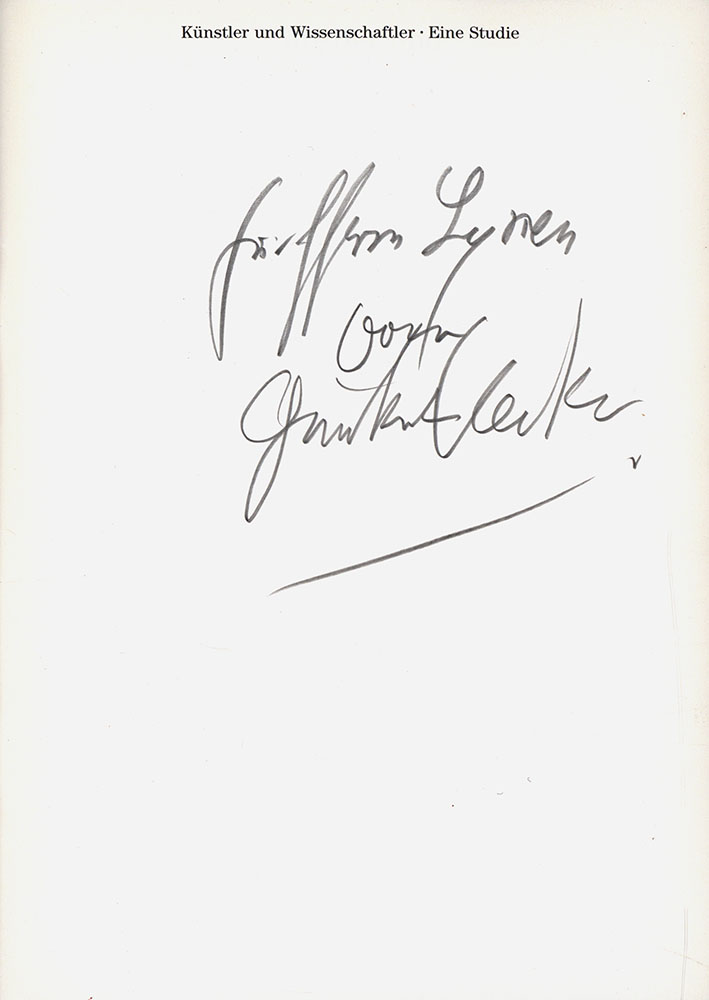 Künstler und Wissenschaftler · Eine Studie
für Herrn Lynen
von